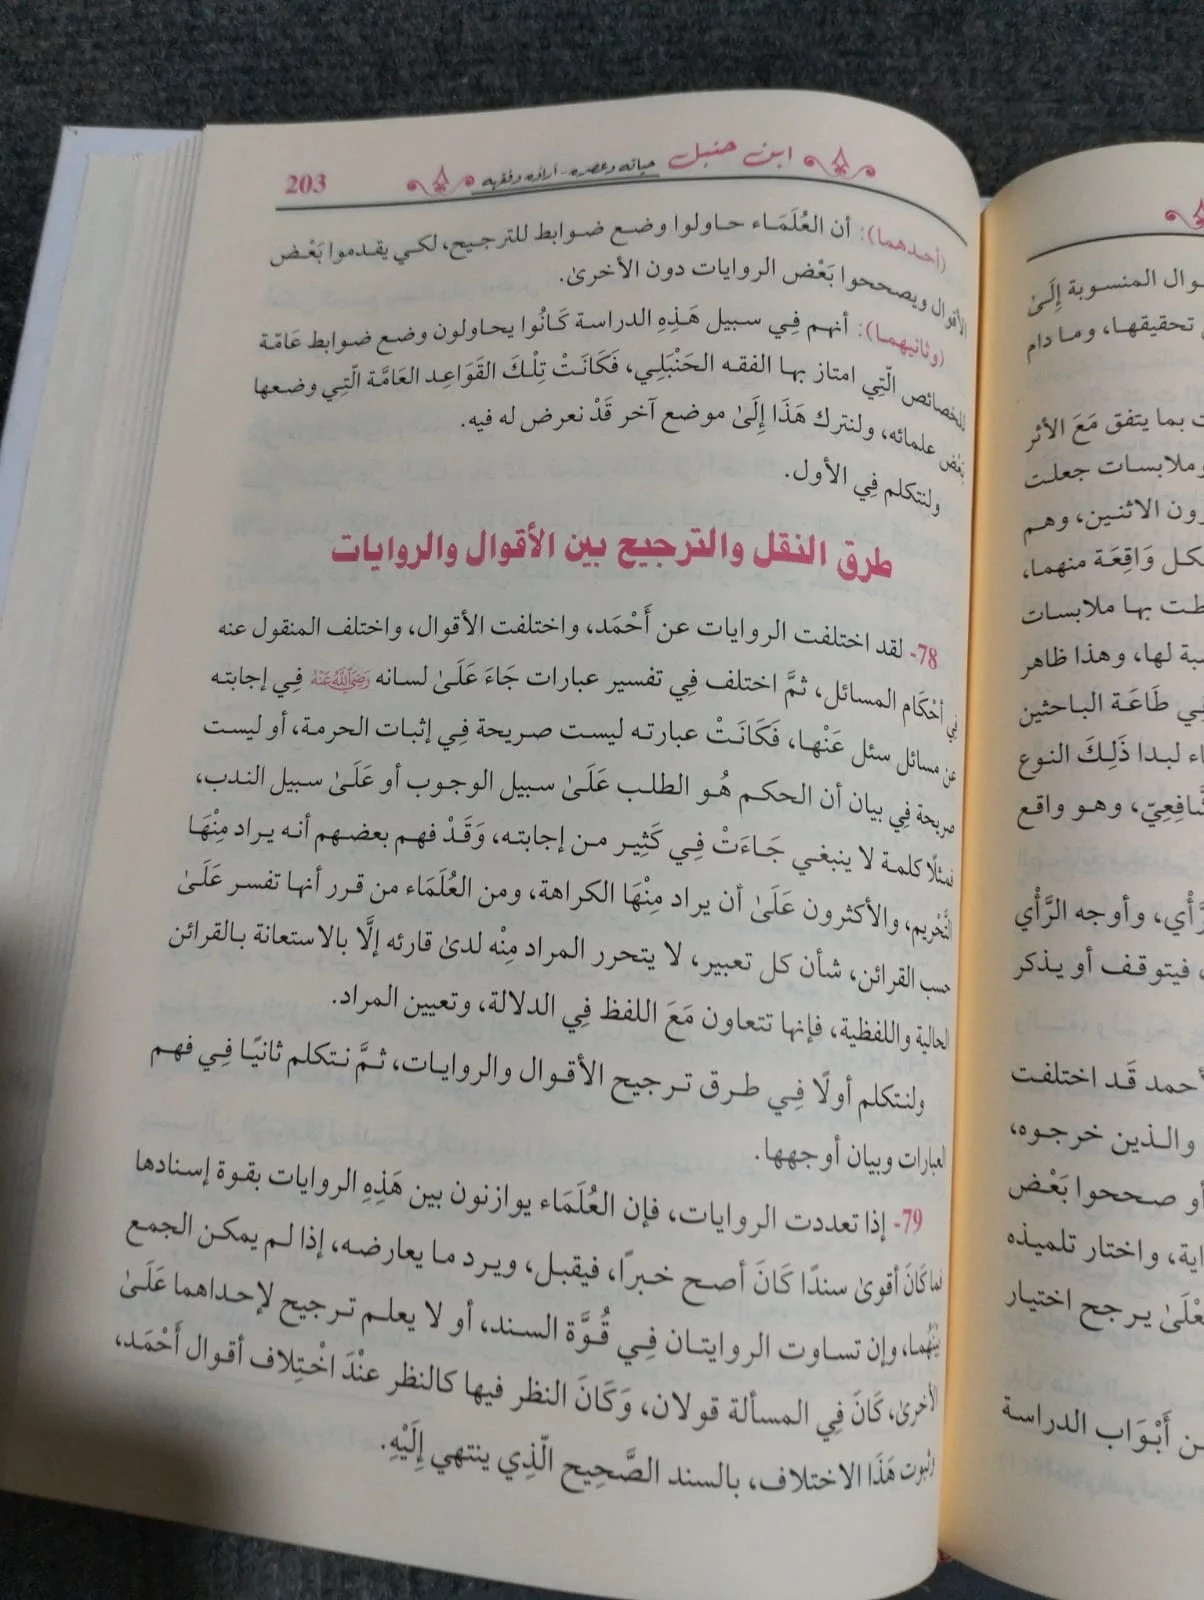 ابن حنبل حياته وعصره - آراؤه وفقهه
203
(أحدهما): أن العُلَمَاء حاولوا وضع ضوابط للترجيح، لكي يقدموا بَعْض
الأقوال ويصححوا بَعْض الروايات دون الأخرىٰ.
(وثانيهما): أنهم فِي سبيل هَذِهِ الدراسة كَانُوا يحاولون وضع ضوابط عَامّة
للخصائص الّتِي امتاز بها الفقه الحَنْبَلِي، فَكَانَتْ تِلْكَ القَوَاعِد العَامَّة الّتِي وضعها
بَعْض علمائه، ولنترك هَذَا إِلَىٰ موضع آخر قَدْ نعرض له فيه.
ولنتكلم فِي الأول.
طرق النقل والترجيح بين الأقوال والروايات
78- لقد اختلفت الروايات عن أَحْمَد، واختلفت الأقوال، واختلف المنقول عنه
فِي أَحْكَام المسائل، ثمَّ اختلف فِي تفسير عبارات جَاءَ عَلَىٰ لسانه رَضِيَ اللَّهُ عَنْهُ فِي إجابته
عن مسائل سئل عَنْها، فَكَانَتْ عبارته ليست صريحة فِي إثبات الحرمة، أو ليست
صريحة فِي بيان أن الحكم هُو الطلب عَلَىٰ سبيل الوجوب أو عَلَىٰ سبيل الندب،
فمثلًا كلمة لا ينبغي جَاءَتْ فِي كَثِير من إجابته، وَقَدْ فهم بعضهم أنه يراد مِنْهَا
التَّحْرِيم، والأكثرون عَلَىٰ أن يراد مِنْهَا الكراهة، ومن العُلَمَاء من قرر أنها تفسر عَلَىٰ
حسب القرائن، شأن كل تعبير، لا يتحرر المراد مِنْه لدىٰ قارئه إلَّا بالاستعانة بالقرائن
الحالية واللفظية، فإنها تتعاون مَعَ اللفظ فِي الدلالة، وتعيين المراد.
ولنتكلم أولًا فِي طرق ترجيح الأقوال والروايات، ثمَّ نتكلم ثانيًا فِي فهم
العبارات وبيان أوجهها.
79- إذا تعددت الروايات، فإن العُلَمَاء يوازنون بين هَذِهِ الروايات بقوة إسنادها
فما كَانَ أقوىٰ سندًا كَانَ أصح خبرًا، فيقبل، ويرد ما يعارضه، إذا لم يمكن الجمع
بَيْنَهُما، وإن تساوت الروايتان فِي قُوَّة السند، أو لا يعلم ترجيح لإحداهما عَلَىٰ
الأخرىٰ، كَانَ فِي المسألة قولان، وَكَانَ النظر فيها كالنظر عنْدَ اخْتِلاف أقوال أَحْمَد،
وثبوت هَذَا الاختلاف، بالسند الصَّحِيح الّذِي ينتهي إِلَيْهِ.
المنسوبة إِلَىٰ
تحقيقها، وما دام
بما يتفق مَعَ الأثر
وملابسات جعلت
الاثنين، وهم
كل وَاقِعَة منهما،
بها ملابسات
لها، وهذا ظاهر
طَاعَة الباحثين
لبدا ذَلِكَ النوع
وهو واقع
وأوجه الرَّأْي
فيتوقف أو يذكر
قَد اختلفت
والذين خرجوه،
أو صححوا بَعْض
واختار تلميذه
يرجح اختيار
أَبْوَاب الدراسة